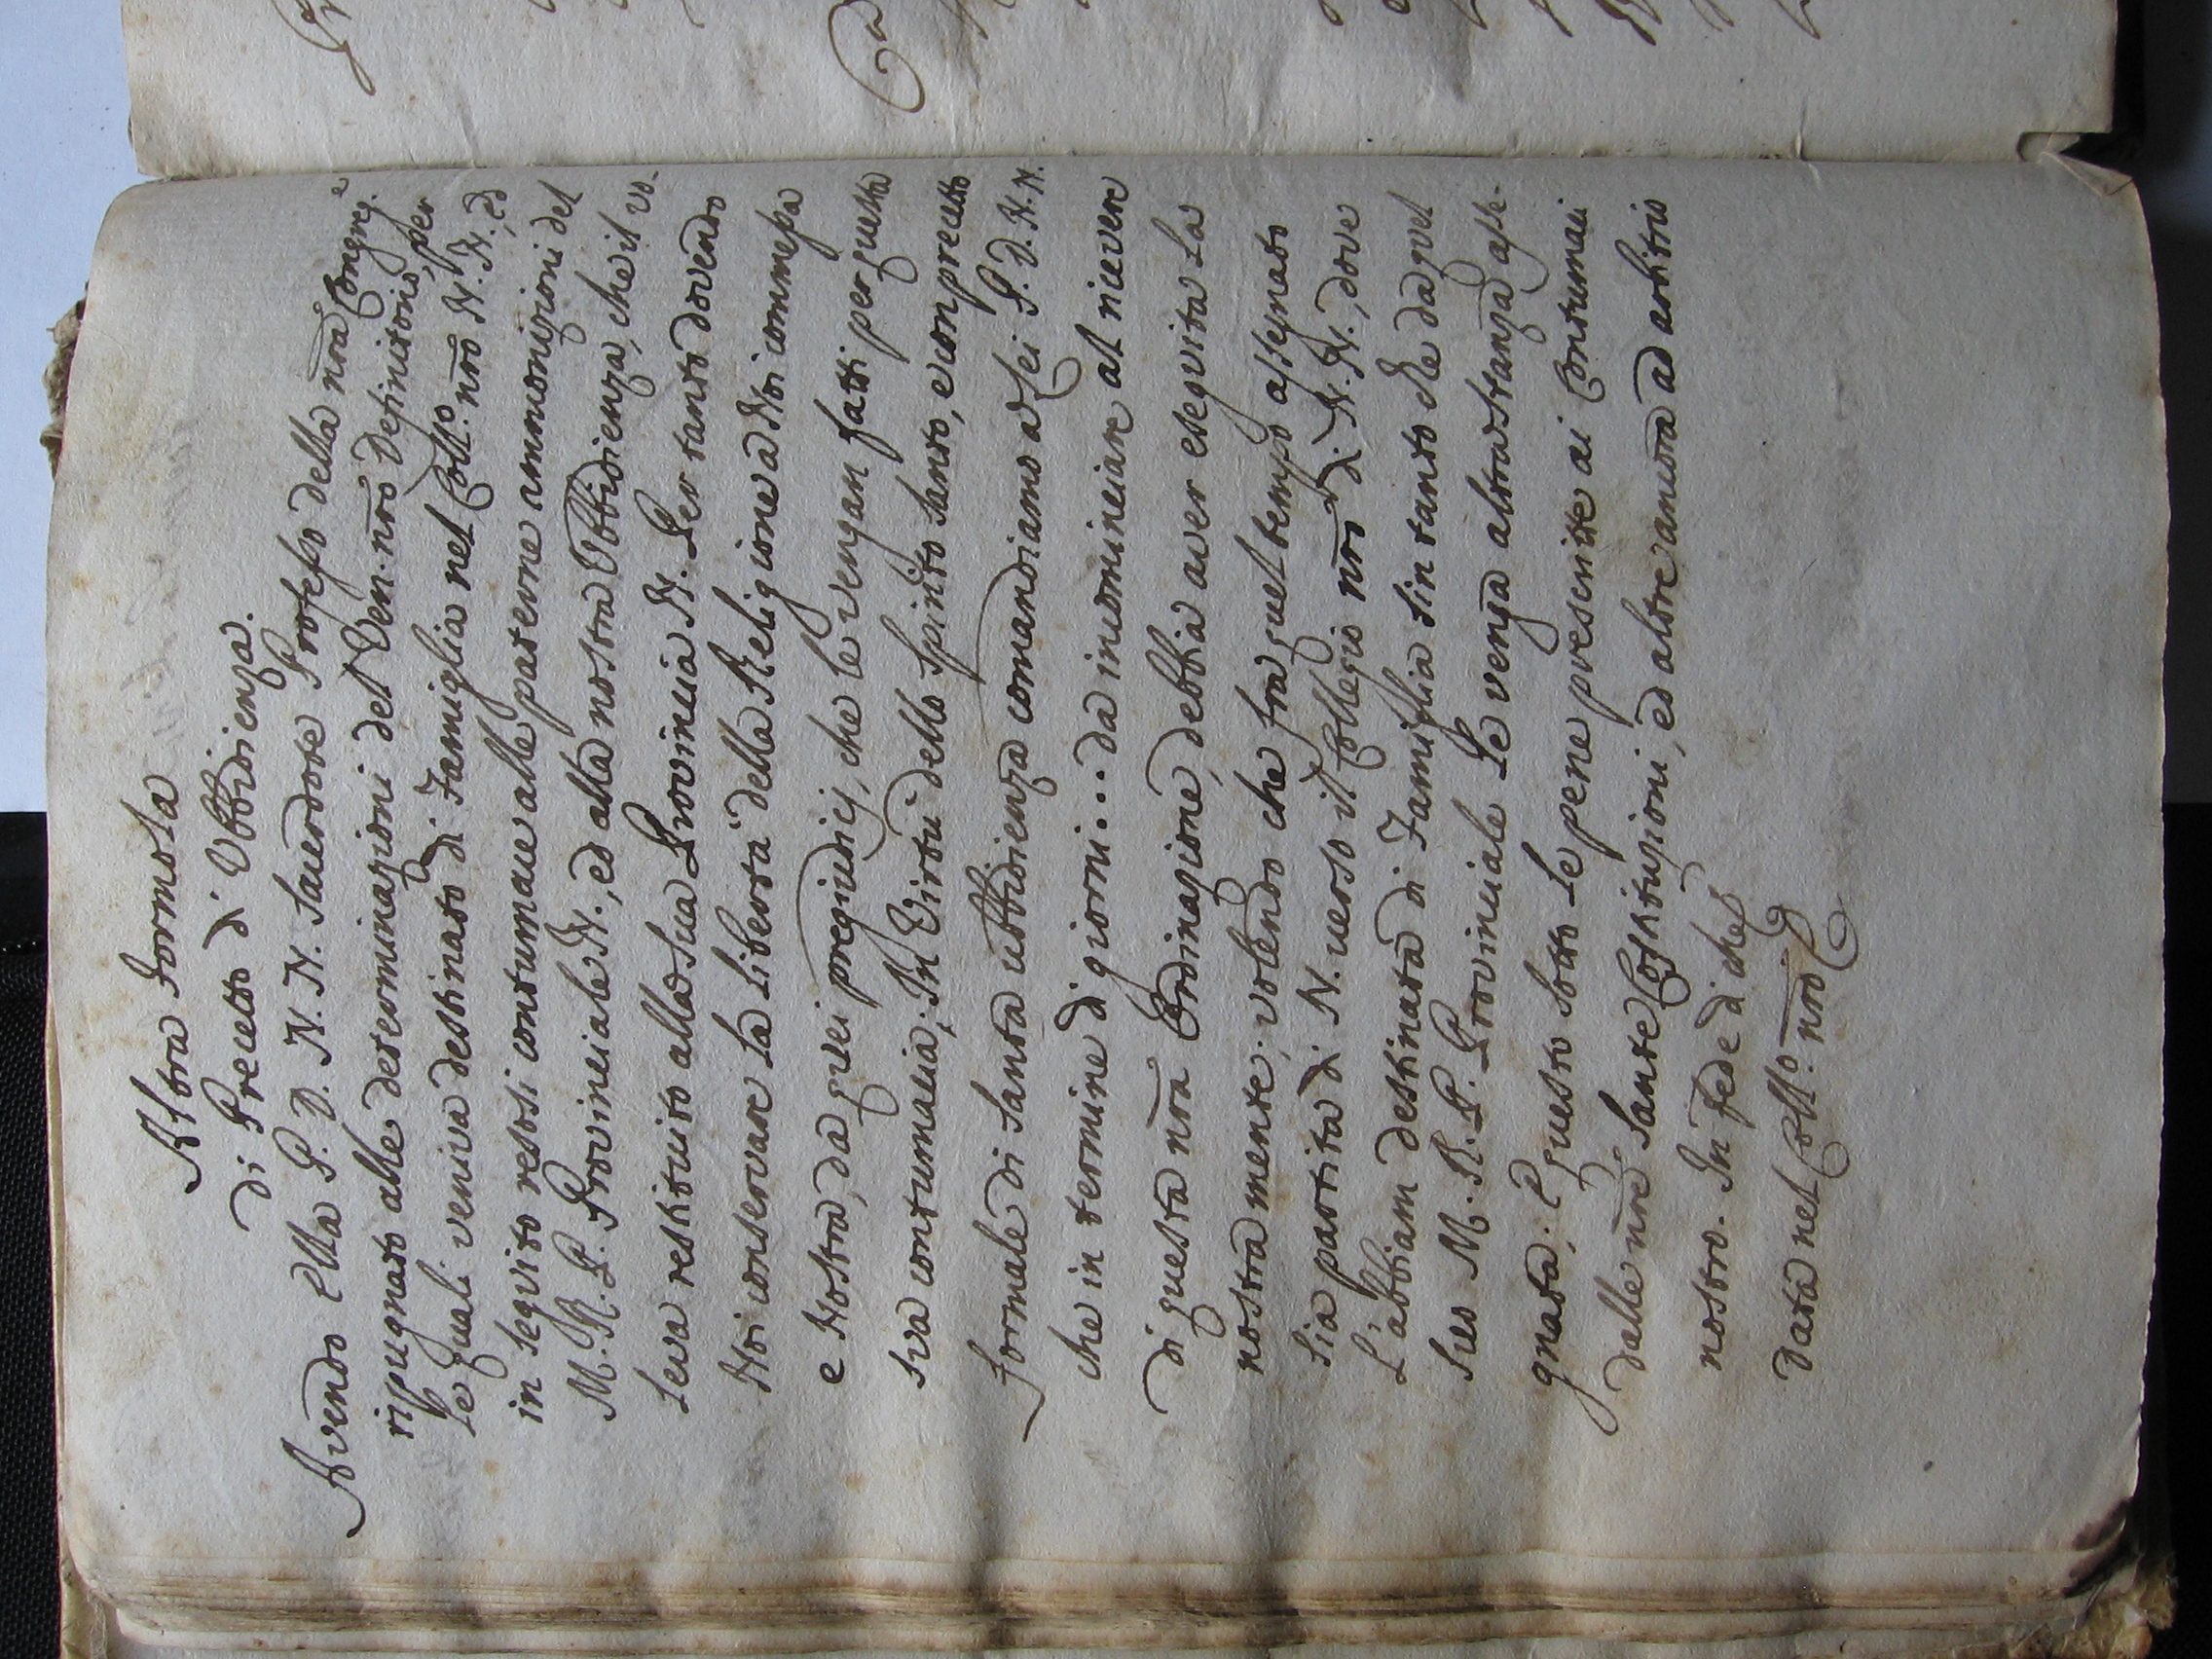 Altra Formola
di Precetto d'Ubbidienza.
Avendo Ella P. D. N. N. Sacerdote Professo della nrã Congreg.e
ripugnato alle determinazioni del Ven. nrõ Definitorio, per
le quali veniva destinato di Famiglia nel Coll.o nrõ N. N., ed
in seguito resosi contumace alle paterne ammonizioni del
M. R. P. Provinciale N., ed alla nostra Ubbidienza, che il vo-
leva restituito alla Sua Provincia N. Per tanto dovendo
Noi conservare la libertà della Religione a Noi commessa
e Nostra, da quei pregiudicj, che le vengan fatti per questa
sua contumacia; In Virtù dello Spirito Santo, e con precetto
formale di Santa ubbidienza comandiamo a Lei P. D. N. N.
che in termine di giorni... da incominciare al ricevere
di questa nrã Ordinazione, debbia aver eseguita la
nostra mente; volendo che fra quel tempo assegnato
sia partita di N. verso il Collegio nrõ di N. N., dove
L'abbiam destinata di Famiglia sin tanto che da quel
Suo M. R. P. Provinciale Le venga altra stanza asse-
gnata; E questo sotto le pene prescritte ai Contumaci
dalle nrẽ Sante Costituzioni, ed altre ancora ad arbitrio
nostro. In fede di che
Data nel Coll.o nrõ